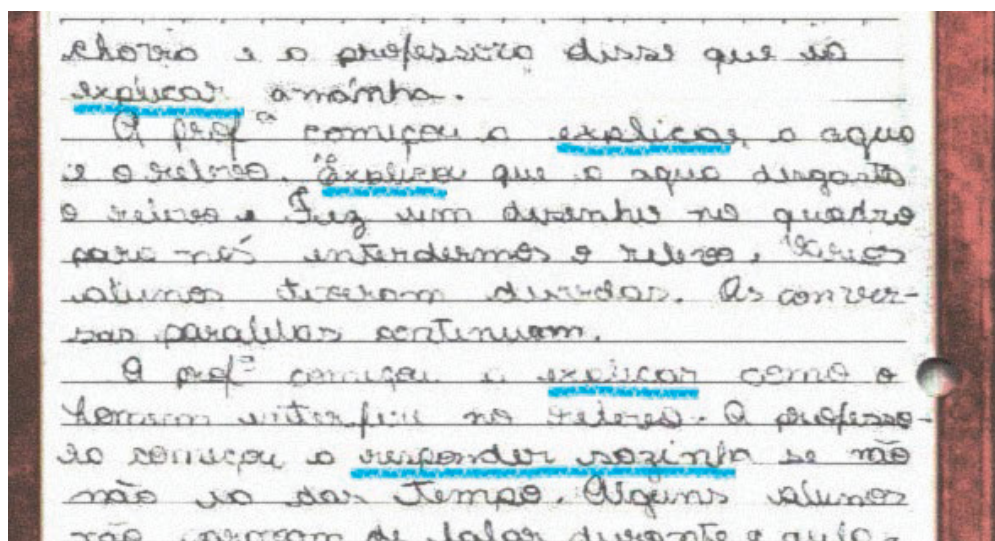 chovia e a professora disse que ia
explicar amanhã.
A profª começou a explicar a agua
e o relevo. Explicou que a agua disgasta
o relevo e Fez um desenho no quadro
para nós interdermos o relevo. Varios
alunos tiveram duvidas. As conver-
sas paralelas continuam.
A profª começou a explicar como o
homem interferi no relevo. A professo-
ra começou a responder sozinha se não
não ia dar tempo. Alguns alunos
não param de falar durante a aula.